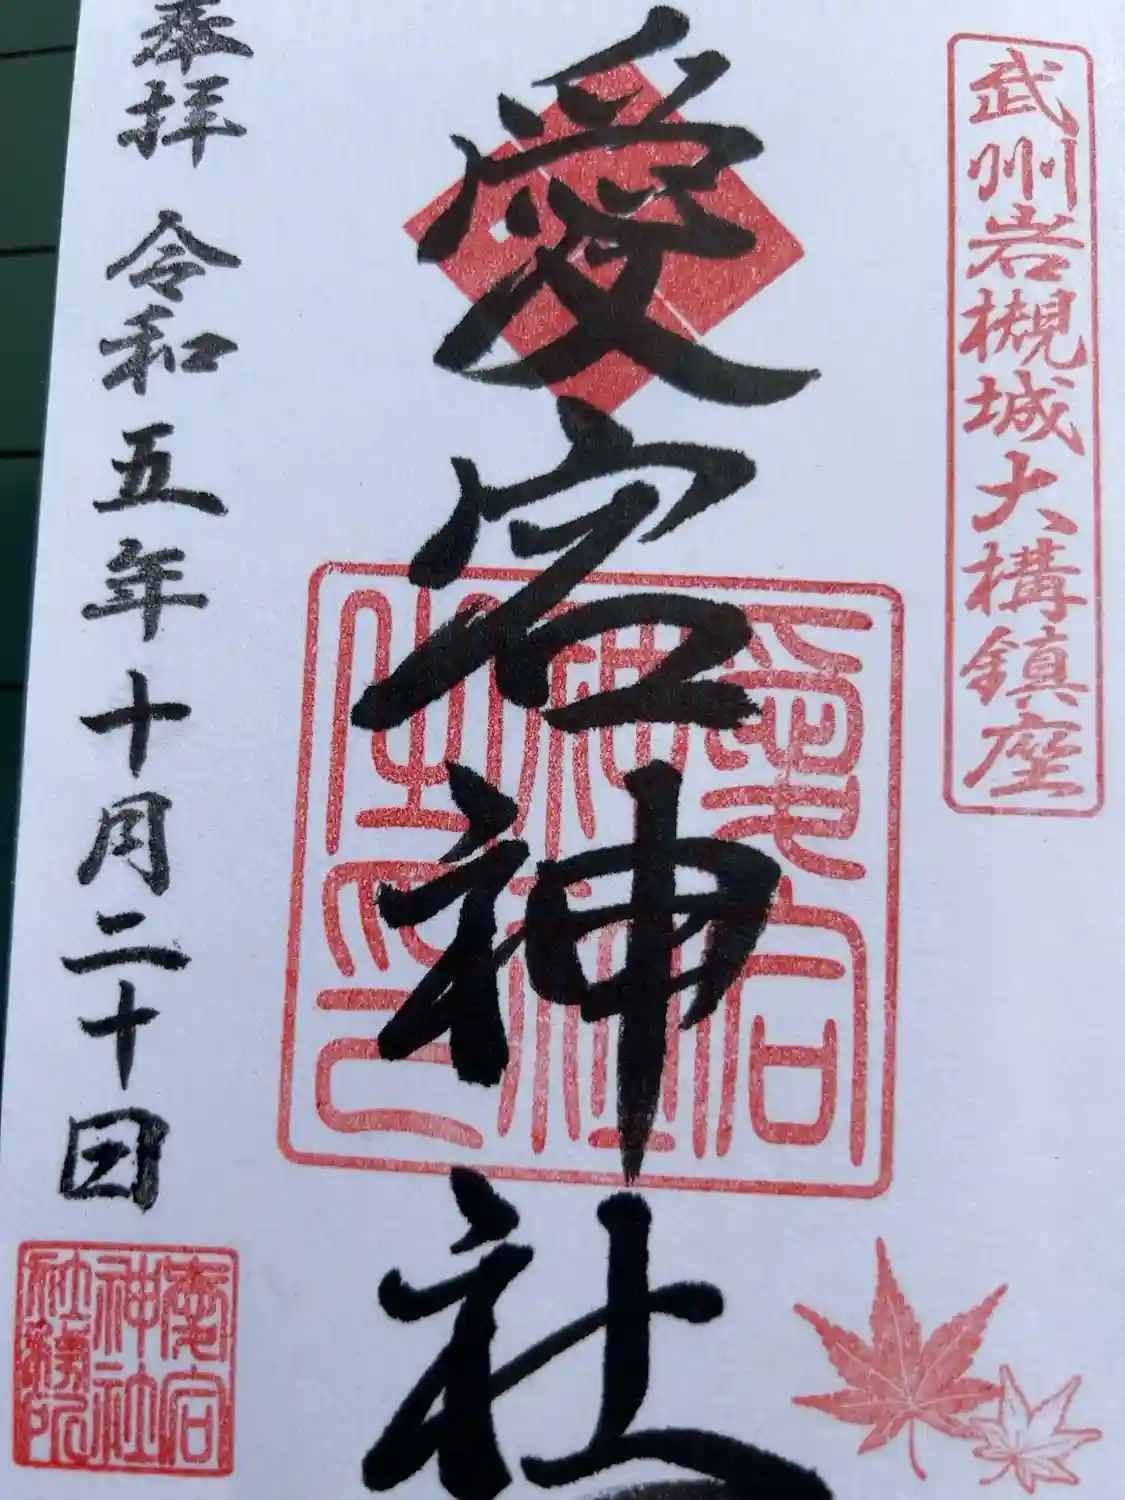 武州岩槻城大構鎮座
愛宕神社
愛宕
神社
之印
奉拝 令和五年十月二十日
愛宕
神社
社務所